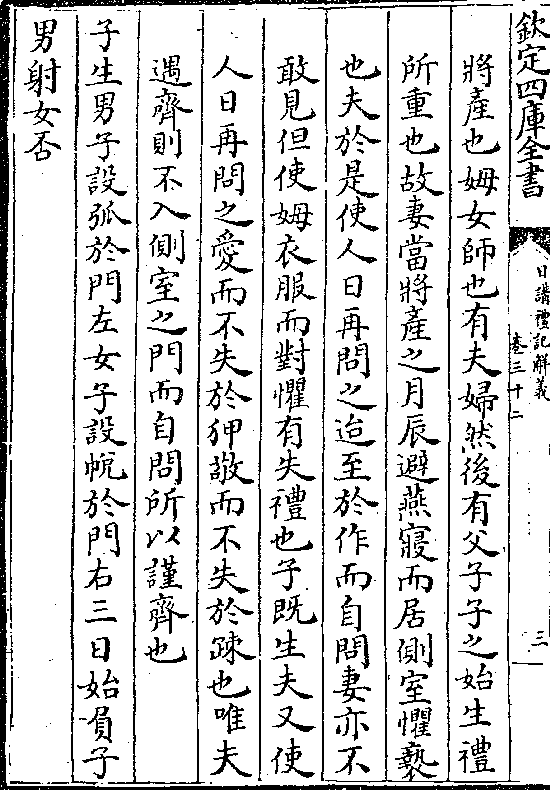 欽定四庫全書
日講禮記解義
卷三十二
三
將產也姆女師也有夫婦然後有父子子之始生禮
所重也故妻當將產之月辰避燕寢而居側室懼褻
也夫於是使人日再問之迨至於作而自問妻亦不
敢見但使姆衣服而對懼有失禮也子既生夫又使
人日再問之愛而不失於狎敬而不失於疎也唯夫
遇齊則不入側室之門而自問所以謹齊也
子生男子設弧於門左女子設帨於門右三日始負子
男射女否